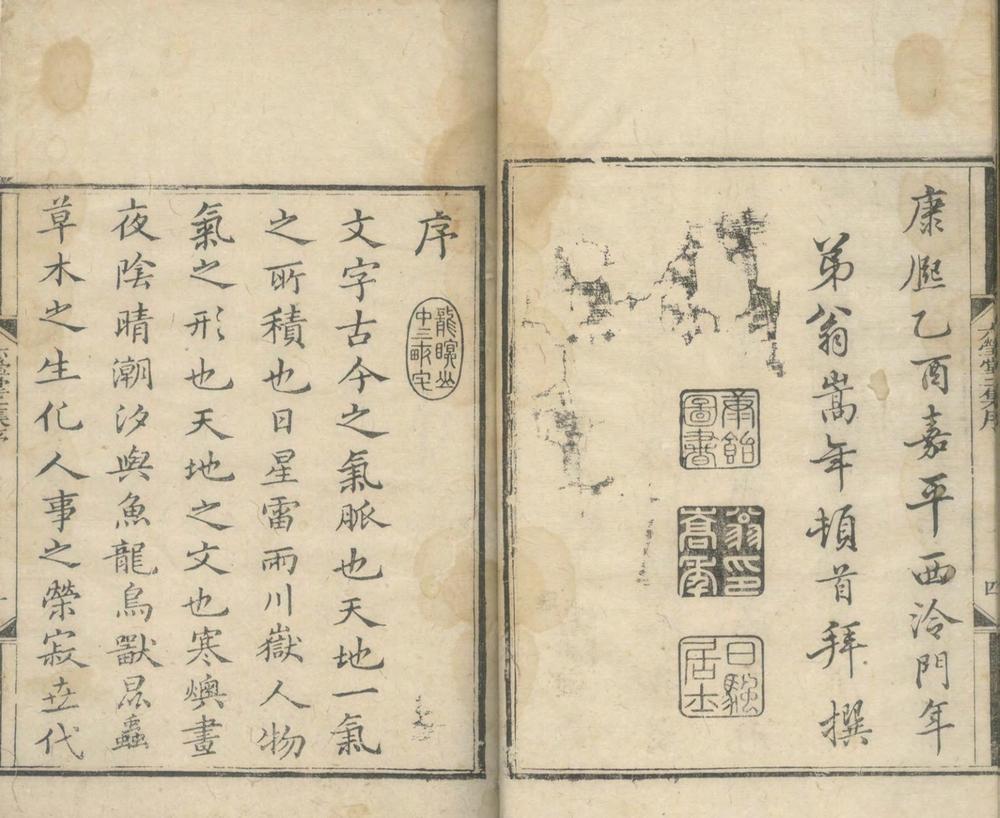 康熙乙酉嘉平西泠門年
弟翁嵩年頓首拜撰
康飴
圖書
翁印
嵩年
序
龍眠山
中三畝宅
文字古今之氣脈也天地一氣
之所積也日星雷雨川嶽人物
氣之形也天地之文也寒燠晝
夜陰晴潮汐與魚龍鳥獸昆蟲
草木之生化人事之榮寂世代